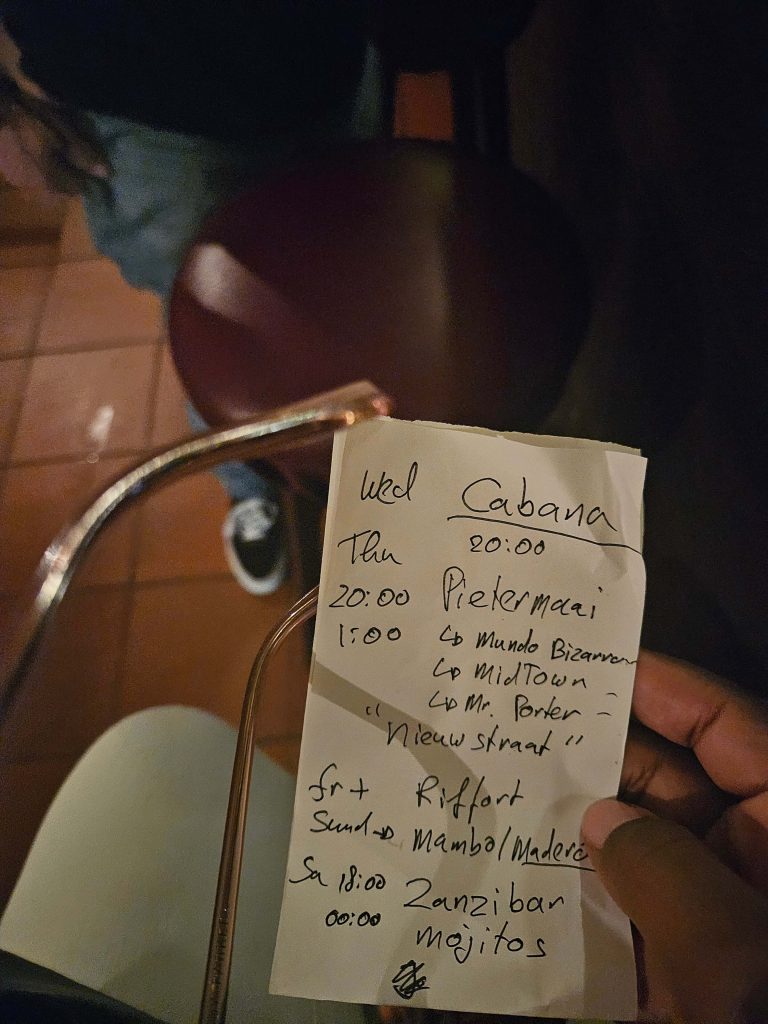 Wed Cabana
Thu 20:00
20:00 Pietermaai
1:00 ↳ Mundo Bizarro
↳ MidTown -
↳ Mr. Porter -
" Nieuwstraat "
fr + Riffort
Sund → Mambo/Madero
Sa 18:00 Zanzibar
00:00 mojitos